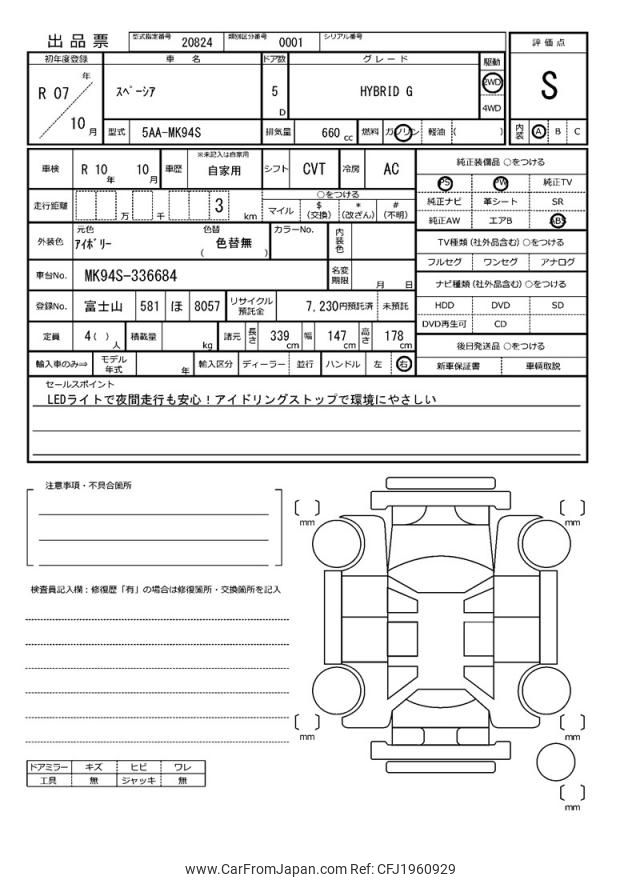 出品票 型式指定番号 20824 類別区分番号 0001 シリアル番号
評価点
S
内装 A B C
初年度登録 車名 ドア数 グレード 駆動
R 07 年 10 月 ｽﾍﾟｰｼｱ 5 D HYBRID G 2WD 4WD
型式 5AA-MK94S 排気量 660 cc 燃料 ガソリン 軽油 ( )
車検 R 10 年 10 月 車歴 ※未記入は自家用 自家用 シフト CVT 冷房 AC
走行距離 万 千 3 km
○をつける
マイル $ (交換) * (改ざん) # (不明)
外装色 元色 ｱｲﾎﾞﾘｰ 色替 ( 色替無 ) カラーNo. 内装色
車台No. MK94S-336684 名変期限 月 日
登録No. 富士山 581 ほ 8057 リサイクル預託金 7,230円預託済 未預託
定員 4 ( ) 人 積載量 kg 諸元 長さ 339 cm 幅 147 cm 高さ 178 cm
輸入車のみ⇒ モデル年式 年 輸入区分 ディーラー 並行 ハンドル 左 右
純正装備品 ○をつける
PS PW 純正TV
純正ナビ 革シート SR
純正AW エアB ABS
TV種類 (社外品含む) ○をつける
フルセグ ワンセグ アナログ
ナビ種類 (社外品含む) ○をつける
HDD DVD SD
DVD再生可 CD
後日発送品 ○をつける
新車保証書 車輌取説
セールスポイント
LEDライトで夜間走行も安心！アイドリングストップで環境にやさしい
注意事項・不具合箇所
検査員記入欄：修復歴「有」の場合は修復箇所・交換箇所を記入
ドアミラー キズ ヒビ ワレ
工具 無 ジャッキ 無
[ ] mm
[ ] mm
[ ] mm
[ ] mm
[ ] mm
www.CarFromJapan.com Ref: CFJ1960929